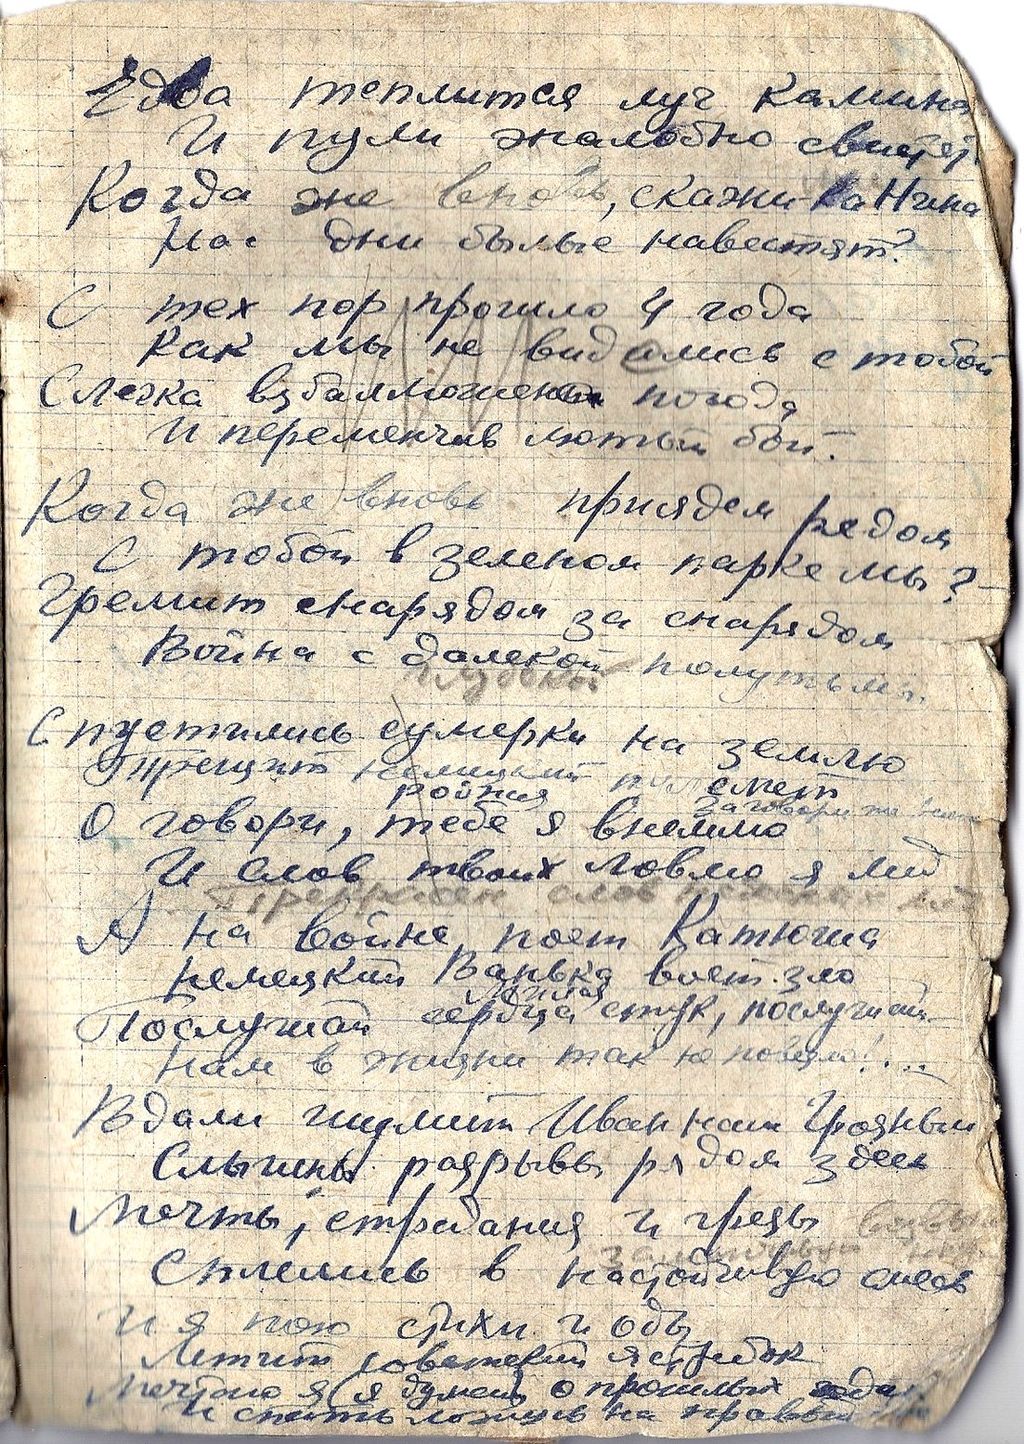 Едва теплится луч камина
И пули жалобно свистят
Когда же вновь, скажи-ка Нина
Нас дни былые навестят?
С тех пор прошло 4 года
Как мы не видались с тобой
Слегка взбалмошена погода
И переменчив лютый бой.
Когда же вновь присядем рядом
С тобой в зеленом парке мы?
Гремит снарядом за снарядом
Война с далекой полутьмы.
глубокой
Спустились сумерки на землю
Трещит немецкий пулемет
родная
Заговори же
О говори, тебе я внемлю
И слов твоих ловлю я
слов
А на войне, поет Катюша
немецкий Ванька воет зло
милая
Послушай сердца стук, послушай
Нам в жизни так не повезло!...
Вдали шумит Иван наш Грозный
Слышны разрывы рядом здесь
Мечты, страдания и грезы
Сплелись в настойчивую смесь
И я пою стихи и оды
Летит советский ястребок
Мечтаю я (я думаю о прошлых годах
И спать ложусь на правый